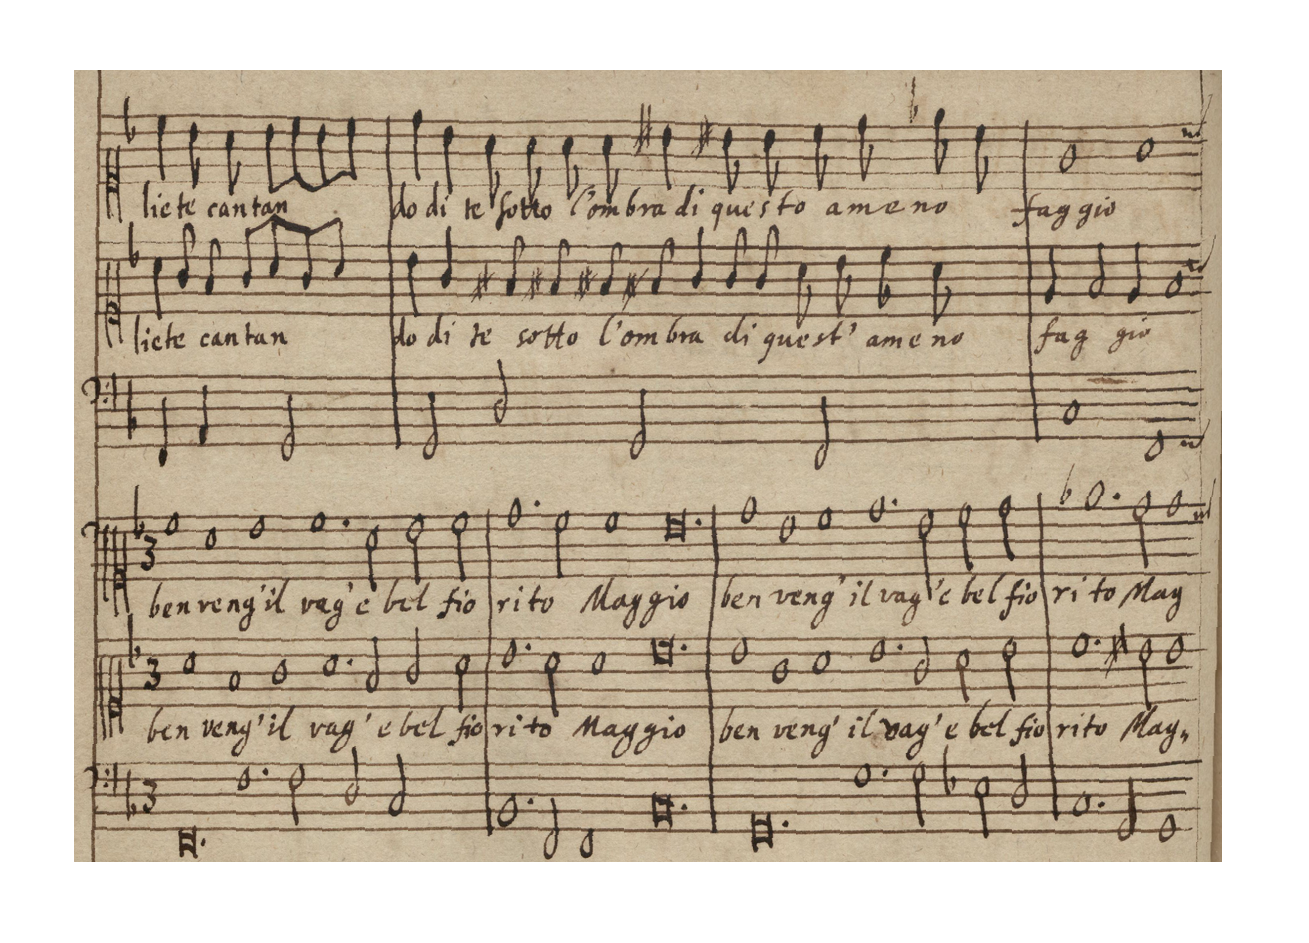 liete cantan do di te sotto l'ombra di questo ameno faggio
liete cantan do di te sotto l'ombra di quest' ameno fag gio
3
ben veng' il vag' e bel fio rito Maggio ben veng' il vag' e bel fio ri to Mag
3
ben veng' il vag' e bel fio rito Maggio ben veng' il vag' e bel fio rito Mag,,
3